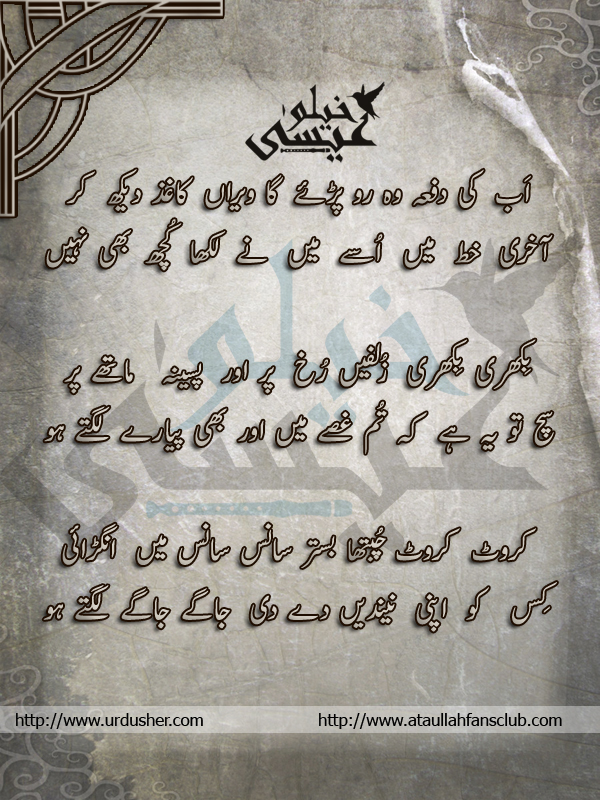 عیسیٰ خیلوی
اَب کی دفعہ وہ رو پڑئے گا ویراں کاغذ دیکھ کر
آخری خط میں اُسے میں نے لکھا کُچھ بھی نہیں
بِکھری بِکھری زُلفیں رُخ پر اور پسینہ ماتھے پر
سچ تو یہ ہے کہ تُم غصے میں اور بھی پیارے لگتے ہو
کروٹ کروٹ چُبتھا بستر سانس سانس میں انگڑائی
کِس کو اپنی نیندیں دے دی جاگے جاگے لگتے ہو
http://www.urdusher.com http://www.ataullahfansclub.com